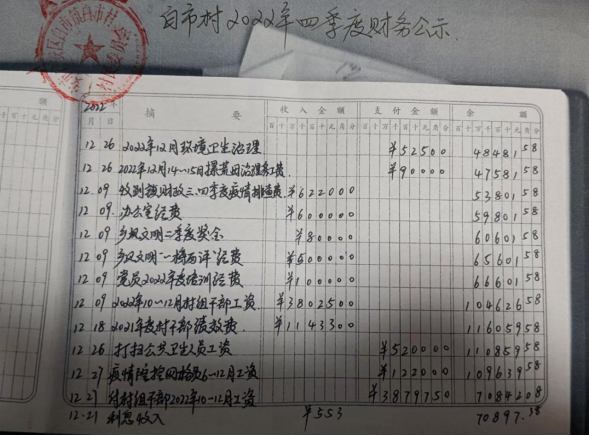 白市村2022年四季度财务公示.
2022年 摘要 收入金额 支付金额 余额
月 日 百十万千百十元角分 百十万千百十元角分 百十万千百十元角分
12 26 2022年12月环境卫生治理 ¥52500 4848158
12 26 2022年12月14~15日 ¥90000 4758158
12 09 收到镇财政三.四季度疫情排查费 ¥622000 5380158
12 09 办公室经费 ¥600000 5980158
12 09 乡风文明二季度奖金 ¥80000 6060158
12 09 乡风文明"一榜两评"经费 ¥500000 6560158
12 09 党员2022年度培训经费 ¥100000 6660158
12 09 2022年10~12月村组干部工资 ¥3802500 10462658
12 18 2021年度村干部绩效费 ¥1143300 11605958
12 26 打扫公共卫生人员工资 ¥520000 11085958
12 27 疫情防控网格员6~12月工资 ¥122000 10963958
12 27 付村组干部2022年10~12月工资 ¥3879750 7084208
12.21 利息收入 ¥553 70897.38